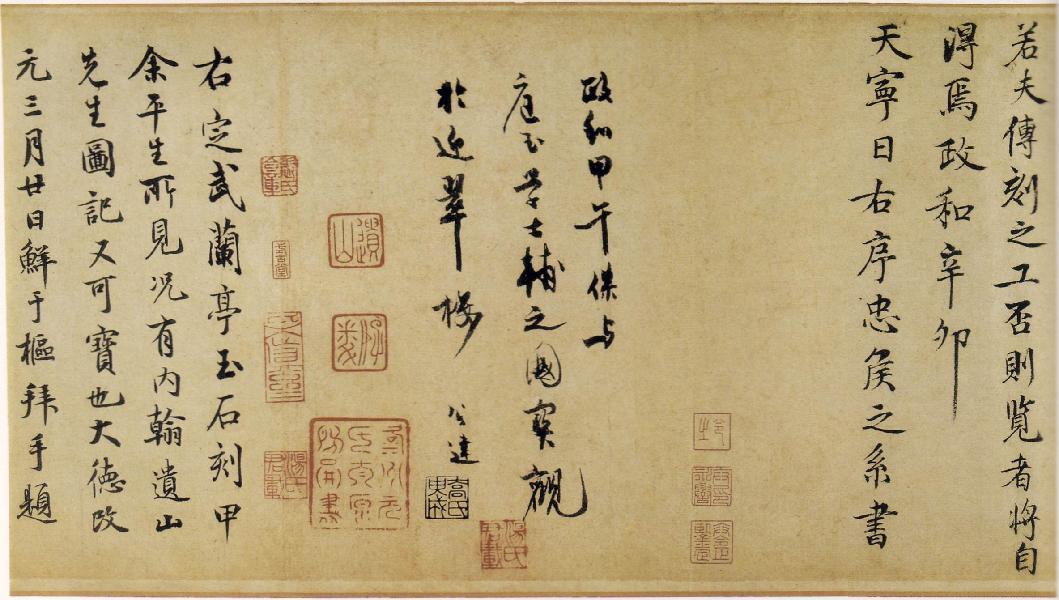 若夫傳刻之工否則覽者將自
淂焉政和辛卯
天寧日右序忠矦之系書
政和甲午保与
学士輔之國寶觀
於迎翠楼 公達
楊氏君載
遺山
楊氏君載
右定武蘭亭玉石刻甲
余平生所見况有内翰遺山
先生圖記又可寶也大德改
元三月廿日鮮于樞拜手題